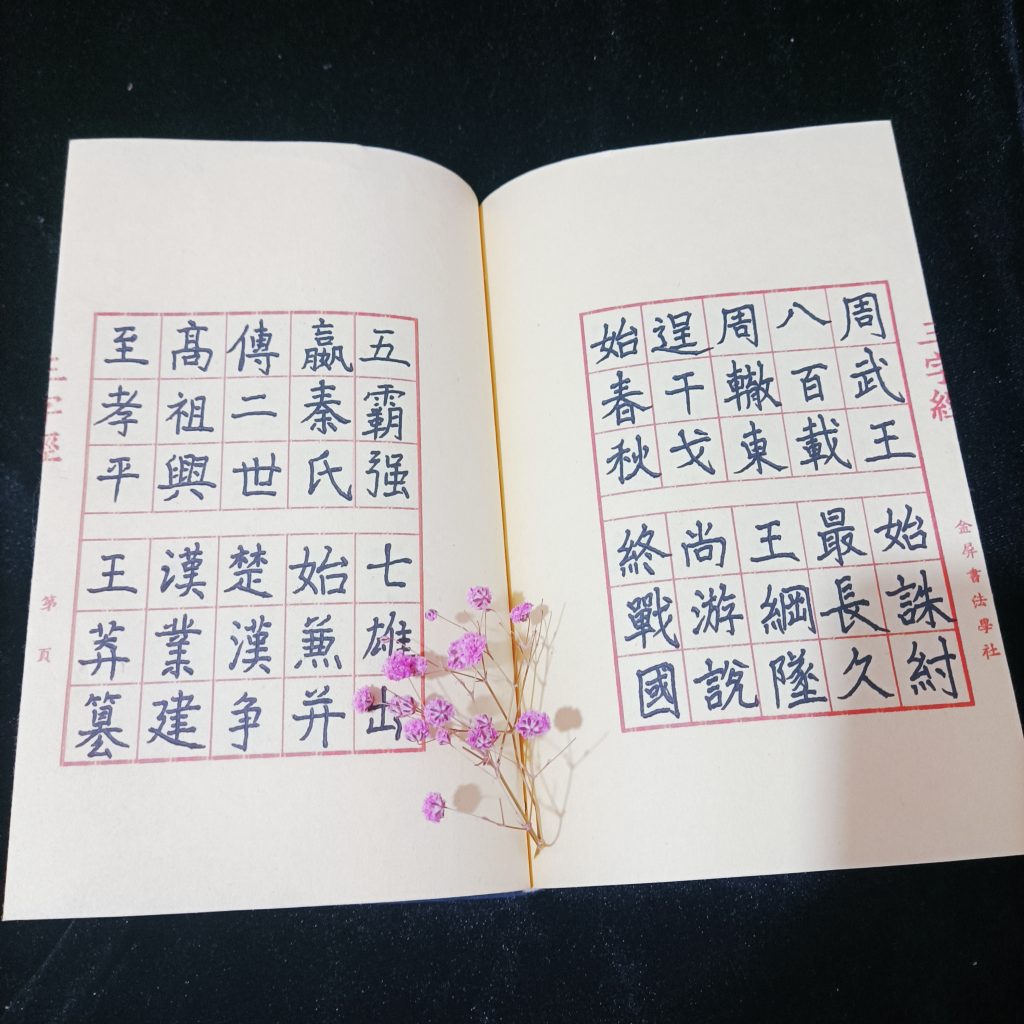 三字經
金屏書法學社
周武王
始誅紂
八百載
最長久
周轍東
王綱墜
逞干戈
尚游説
始春秋
終戰國
五霸强
七雄出
嬴秦氏
始兼并
傳二世
楚漢争
髙祖興
漢業建
至孝平
王莽篡
三字經
第 頁